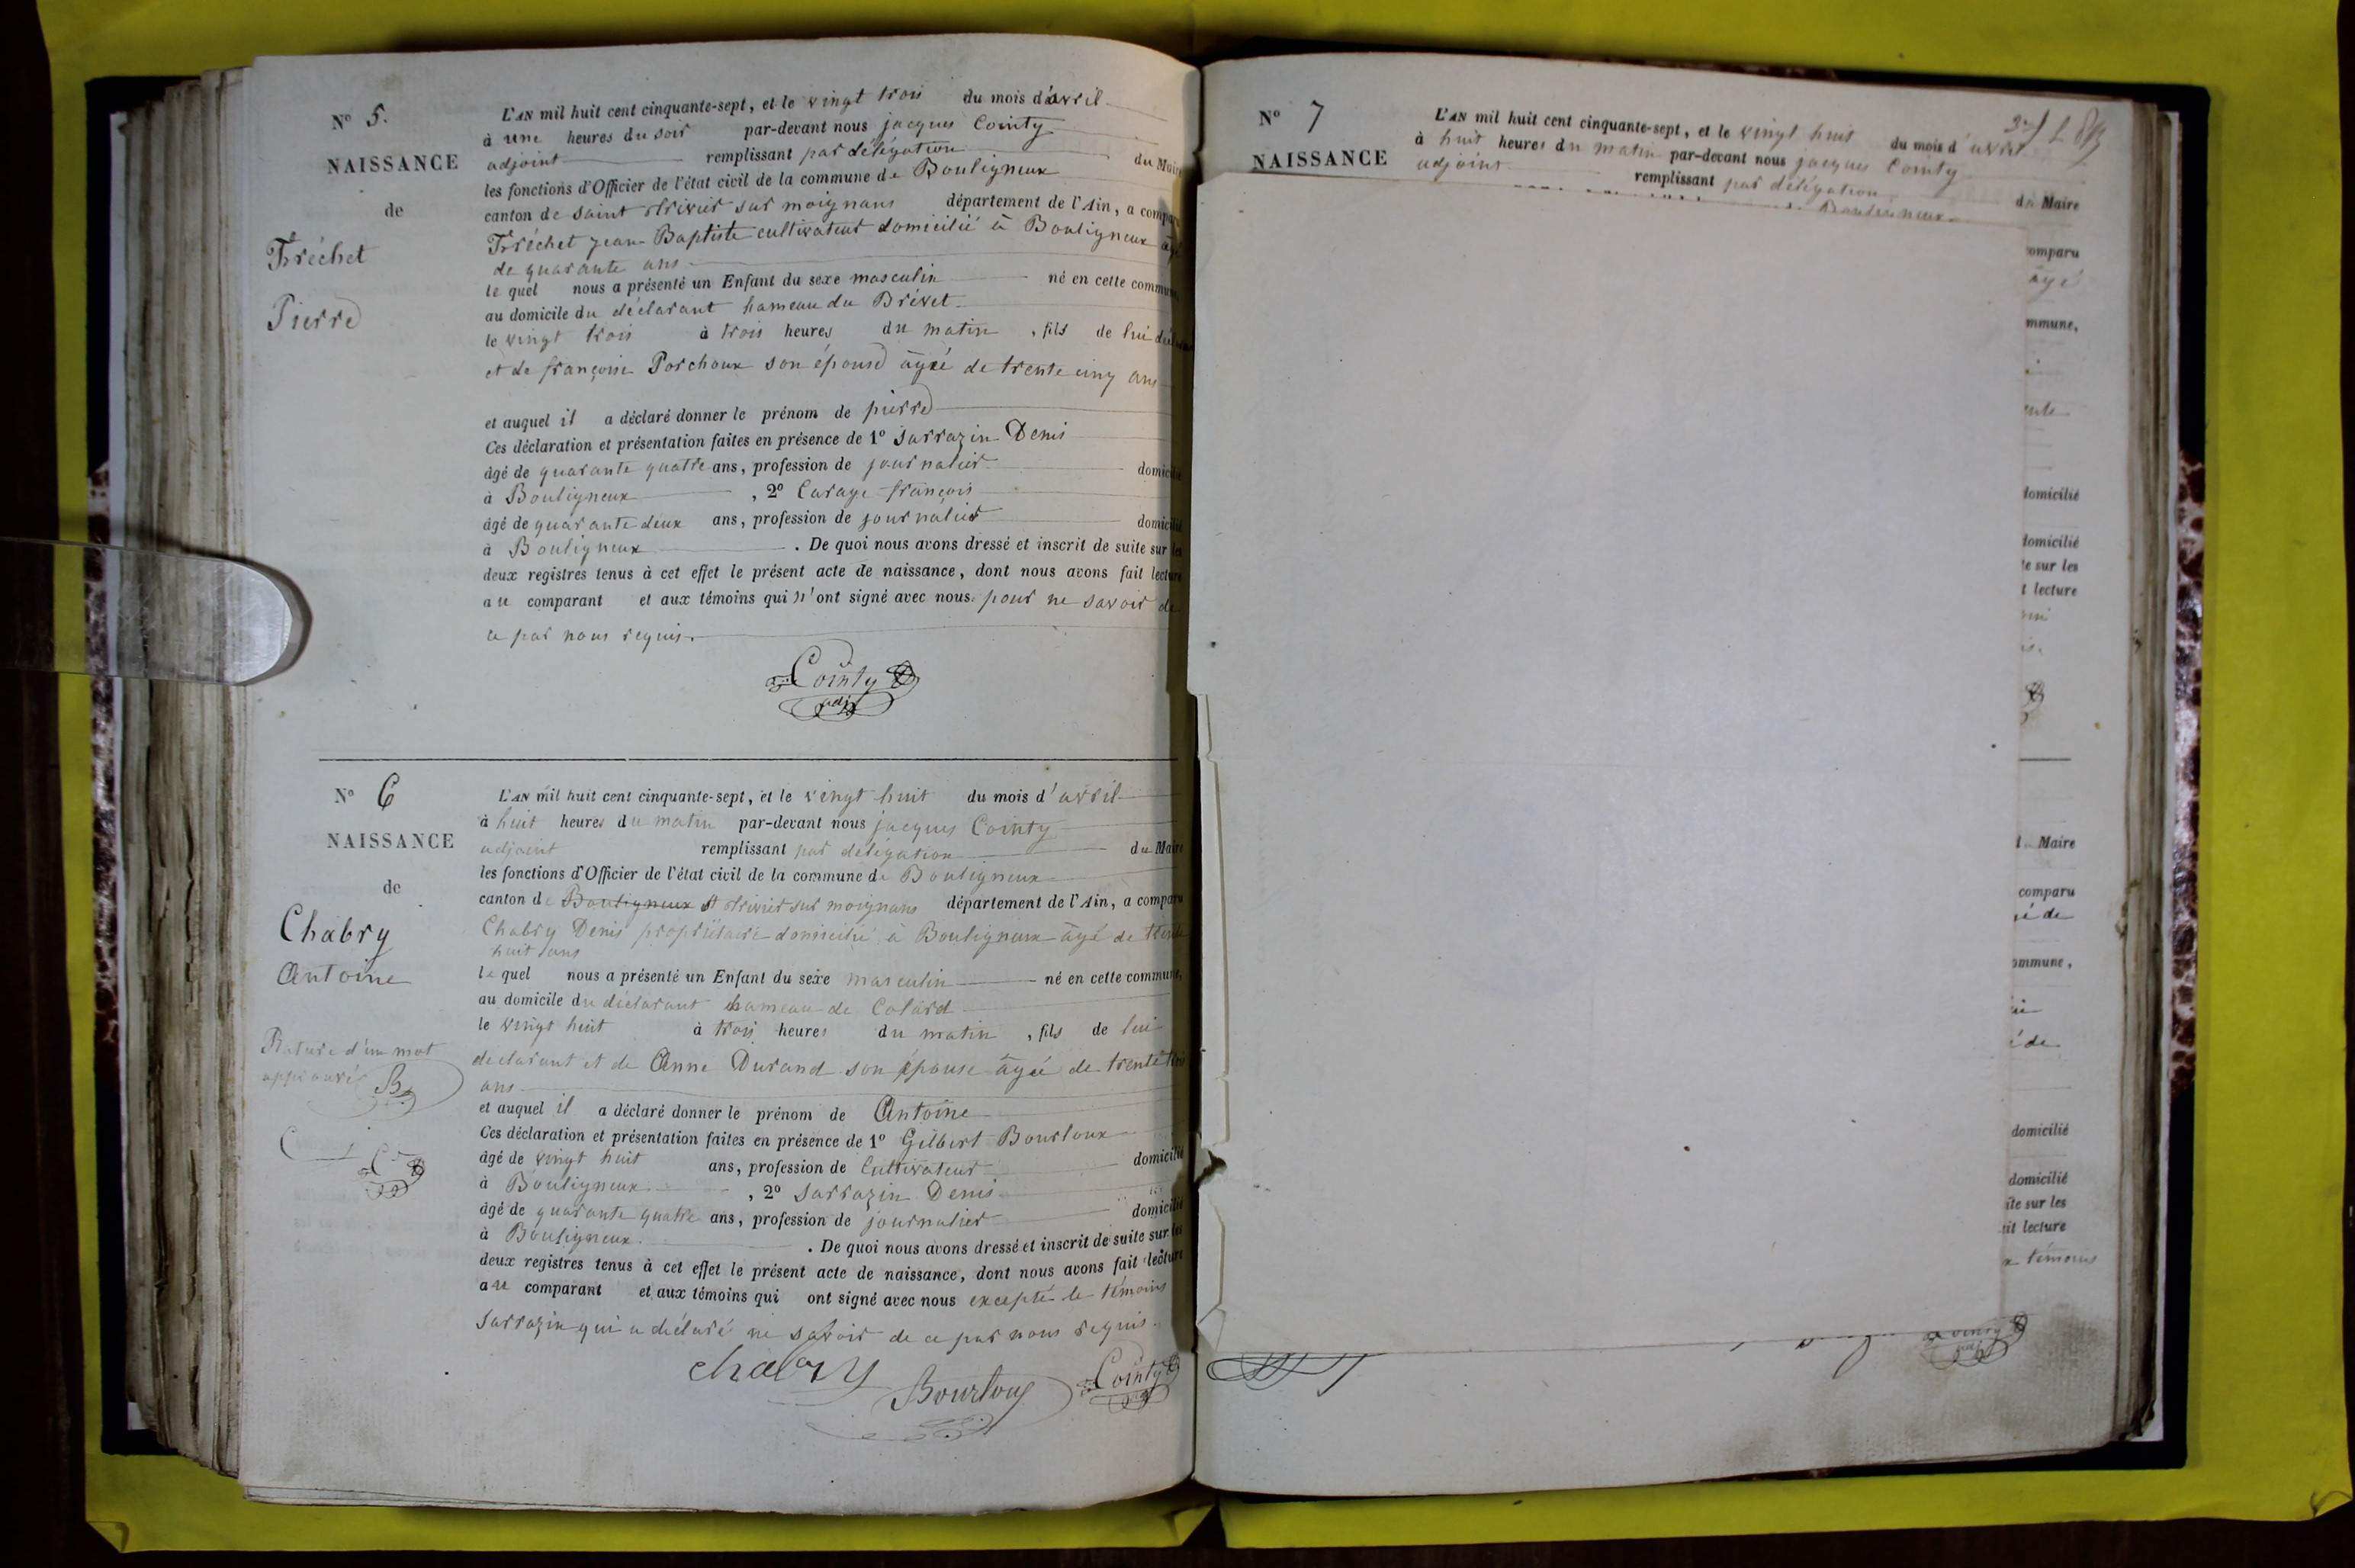 N° 5.
NAISSANCE
de
Fréchet
Pierre
L'AN mil huit cent cinquante-sept, et le vingt trois du mois d'avril
à une heures du soir par-devant nous jacques Cointy
adjoint remplissant par délégation du Maire
les fonctions d'Officier de l'état civil de la commune de Bouligneux
canton de saint trivier sur moignans département de l'Ain, a comparu
Fréchet jean Baptiste cultivateur domicilié à Bouligneux âgé
de quarante ans
le quel nous a présenté un Enfant du sexe masculin né en cette commune,
au domicile du déclarant hameau du Brévet
le vingt trois à trois heures du matin, fils de lui
et de françoise Porchoux son épouse âgée de trente cinq ans
et auquel il a déclaré donner le prénom de pierre
Ces déclaration et présentation faites en présence de 1° Sarrazin Denis
âgé de quarante quatre ans, profession de journalier domicilié
à Bouligneux, 2° Carage françois
âgé de quarante deux ans, profession de journalier domicilié
à Bouligneux. De quoi nous avons dressé et inscrit de suite sur les
deux registres tenus à cet effet le présent acte de naissance, dont nous avons fait lecture
au comparant et aux témoins qui n'ont signé avec nous pour ne savoir de
ce par nous requis.
Cointy
adj
N° 6
NAISSANCE
de
Chabry
Antoine
Rature d'un mot
approuvée
L'AN mil huit cent cinquante-sept, et le vingt huit du mois d'avril
à huit heures du matin par-devant nous jacques Cointy
adjoint remplissant par délégation du Maire
les fonctions d'Officier de l'état civil de la commune de Bouligneux
canton de Bouligneux st trivier sur moignans département de l'Ain, a comparu
Chabry Denis propriétaire domicilié à Bouligneux âgé de trente
huit ans
le quel nous a présenté un Enfant du sexe masculin né en cette commune,
au domicile du déclarant hameau de Colard
le vingt huit à trois heures du matin, fils de lui
declarant et de Anne Durand son épouse âgée de trente
ans
et auquel il a déclaré donner le prénom de Antoine
Ces déclaration et présentation faites en présence de 1° Gilbert Bourloux
âgé de vingt huit ans, profession de Cultivateur domicilié
à Bouligneux, 2° Sarrazin Denis
âgé de quarante quatre ans, profession de journalier domicilié
à Bouligneux. De quoi nous avons dressé et inscrit de suite sur les
deux registres tenus à cet effet le présent acte de naissance, dont nous avons fait lecture
au comparant et aux témoins qui ont signé avec nous excepté le témoins
Sarrazin qui a déclaré ne savoir de ce par nous requis.
chabry
Bourloux
Cointy
N° 7
NAISSANCE
L'AN mil huit cent cinquante-sept, et le vingt huit du mois d'avril
à huit heures du matin par-devant nous jacques Cointy
adjoint remplissant par délégation du Maire
Bouligneux
omparu
âgé
mmune,
domicilié
domicilié
te sur les
t lecture
Maire
comparu
é de
ommune,
é de
domicilié
domicilié
ite sur les
it lecture
témoins
Cointy
adj